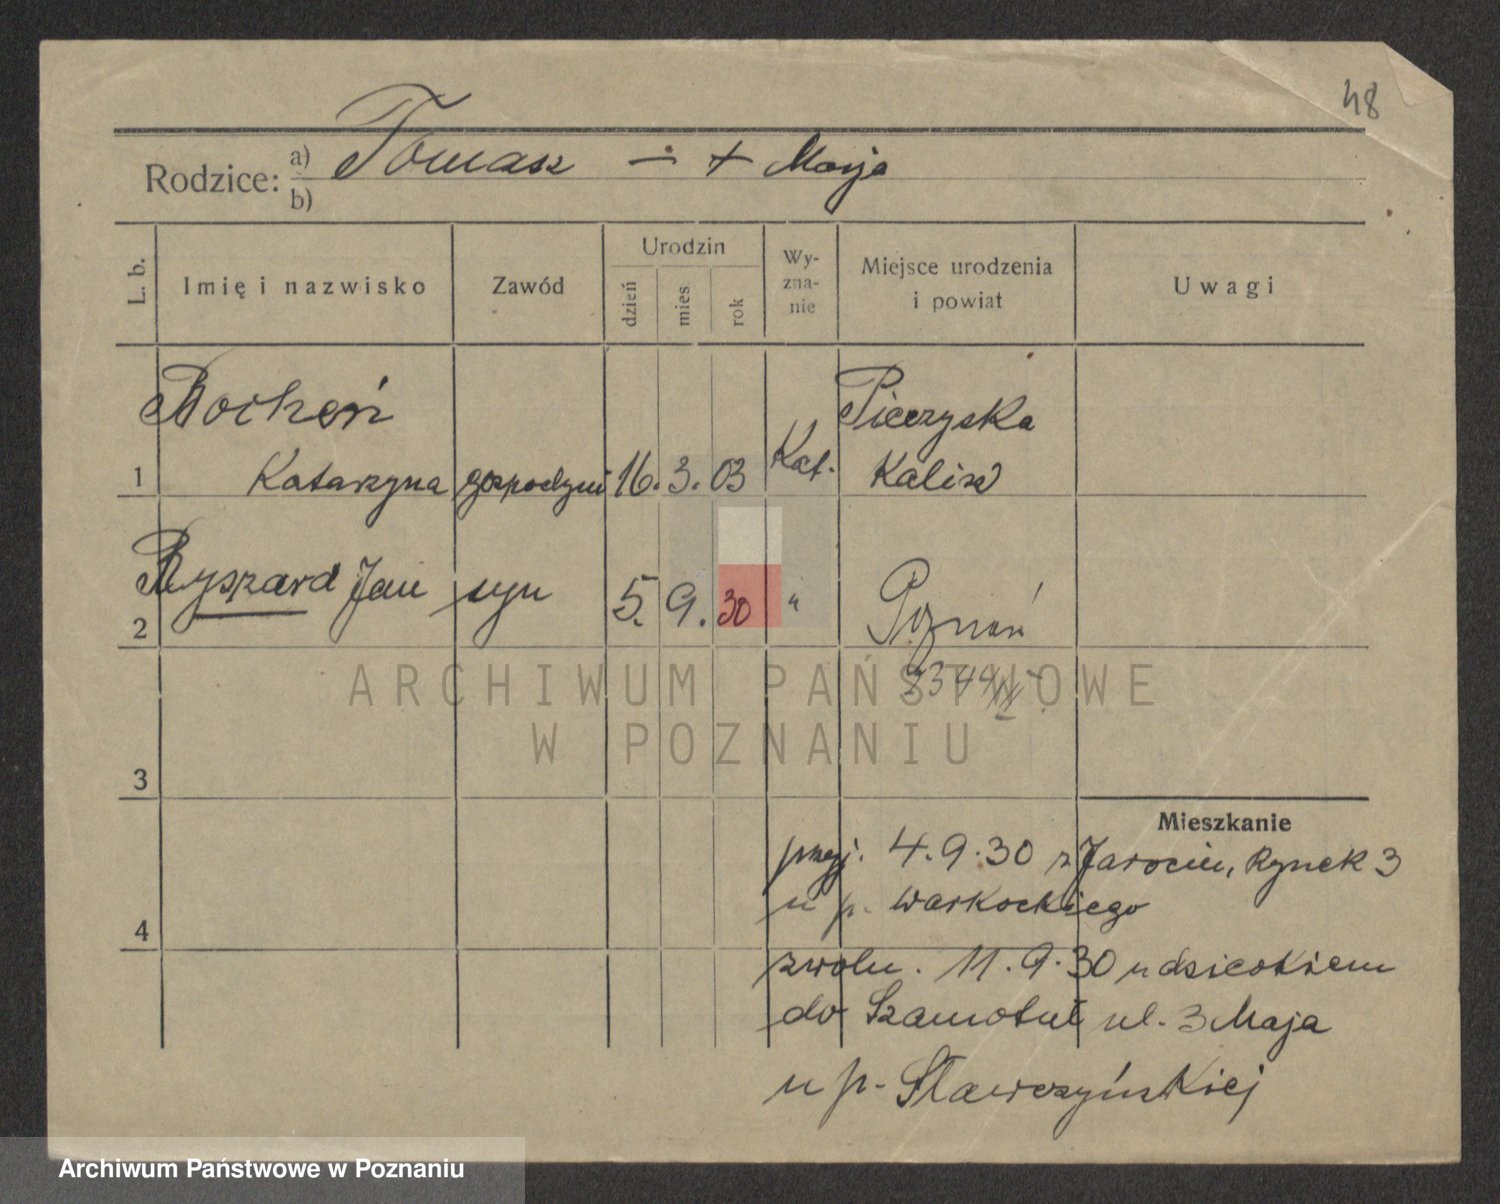 48
Rodzice: a) Tomasz ÷ + Marja
b)
L. b.
Imię i nazwisko
Zawód
Urodzin
dzień
mies
rok
Wy-
zna-
nie
Miejsce urodzenia
i powiat
Uwagi
Bocheń
Pieczyska
1 Katarzyna gospodyni 16. 3. 03 Kat. Kalisz
2 Ryszard Jan syn 5. 9. 30 " Poznań
ARCHIWUM PAŃSTWOWE
W POZNANIU
3
Mieszkanie
przyj. 4.9.30 z Jarocin, Rynek 3
u p. Warkockiego
4
zwoln. 11.9.30 z dzieckiem
do Szamotuł ul. 3 Maja
u p. Sławczyńskiej
Archiwum Państwowe w Poznaniu